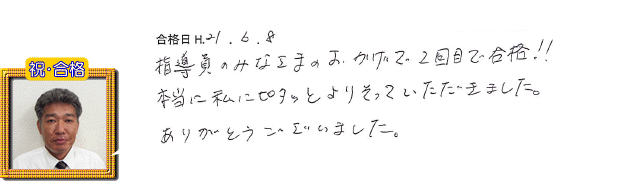 合格日 H.21.6.8
祝・合格
指導員のみなさまのおかげで2回目で合格!!
本当に私にピタッとよりそっていただきました。
ありがとうございました。